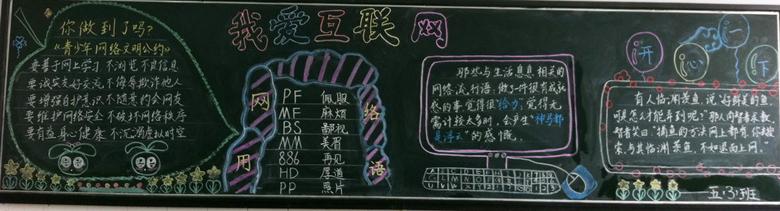 我爱互联网
你做到了吗?
《青少年网络文明公约》
要善于网上学习 不浏览不良信息
要诚实友好交流 不侮辱欺诈他人
要增强自护意识 不随意约会网友
要维护网络安全 不破坏网络秩序
要有益身心健康 不沉溺虚拟时空
网络用语
PF 佩服
MF 麻烦
BS 鄙视
MM 美眉
886 再见
HD 厚道
PP 照片
那些与生活息息相关的
网络流行语:做了件很有成就
感的事觉得很"给力",觉得无
富计较太多时,会尹生"神马都
是浮云"的感慨。
开心一下
有人临渊羡鱼,说"好鲜美的鱼
可是怎么才能弄到呢?"那人向智者求教
智者笑曰"捕鱼的方法网上都有,你去搜
索,与其临渊羡鱼,不如退而上网。"
五·3·班